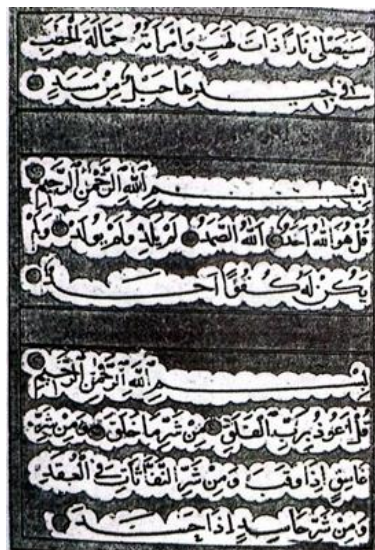 سَيَصْلَى نَارًا ذَاتَ لَهَبٍ وَامْرَأَتُهُ حَمَّالَةَ الْحَطَبِ
فِي جِيدِهَا حَبْلٌ مِنْ مَسَدٍ
بِسْمِ اللَّهِ الرَّحْمَنِ الرَّحِيمِ
قُلْ هُوَ اللَّهُ أَحَدٌ اللَّهُ الصَّمَدُ لَمْ يَلِدْ وَلَمْ يُولَدْ وَلَمْ
يَكُنْ لَهُ كُفُوًا أَحَدٌ
بِسْمِ اللَّهِ الرَّحْمَنِ الرَّحِيمِ
قُلْ أَعُوذُ بِرَبِّ الْفَلَقِ مِنْ شَرِّ مَا خَلَقَ وَمِنْ شَرِّ
غَاسِقٍ إِذَا وَقَبَ وَمِنْ شَرِّ النَّفَّاثَاتِ فِي الْعُقَدِ
وَمِنْ شَرِّ حَاسِدٍ إِذَا حَسَدَ